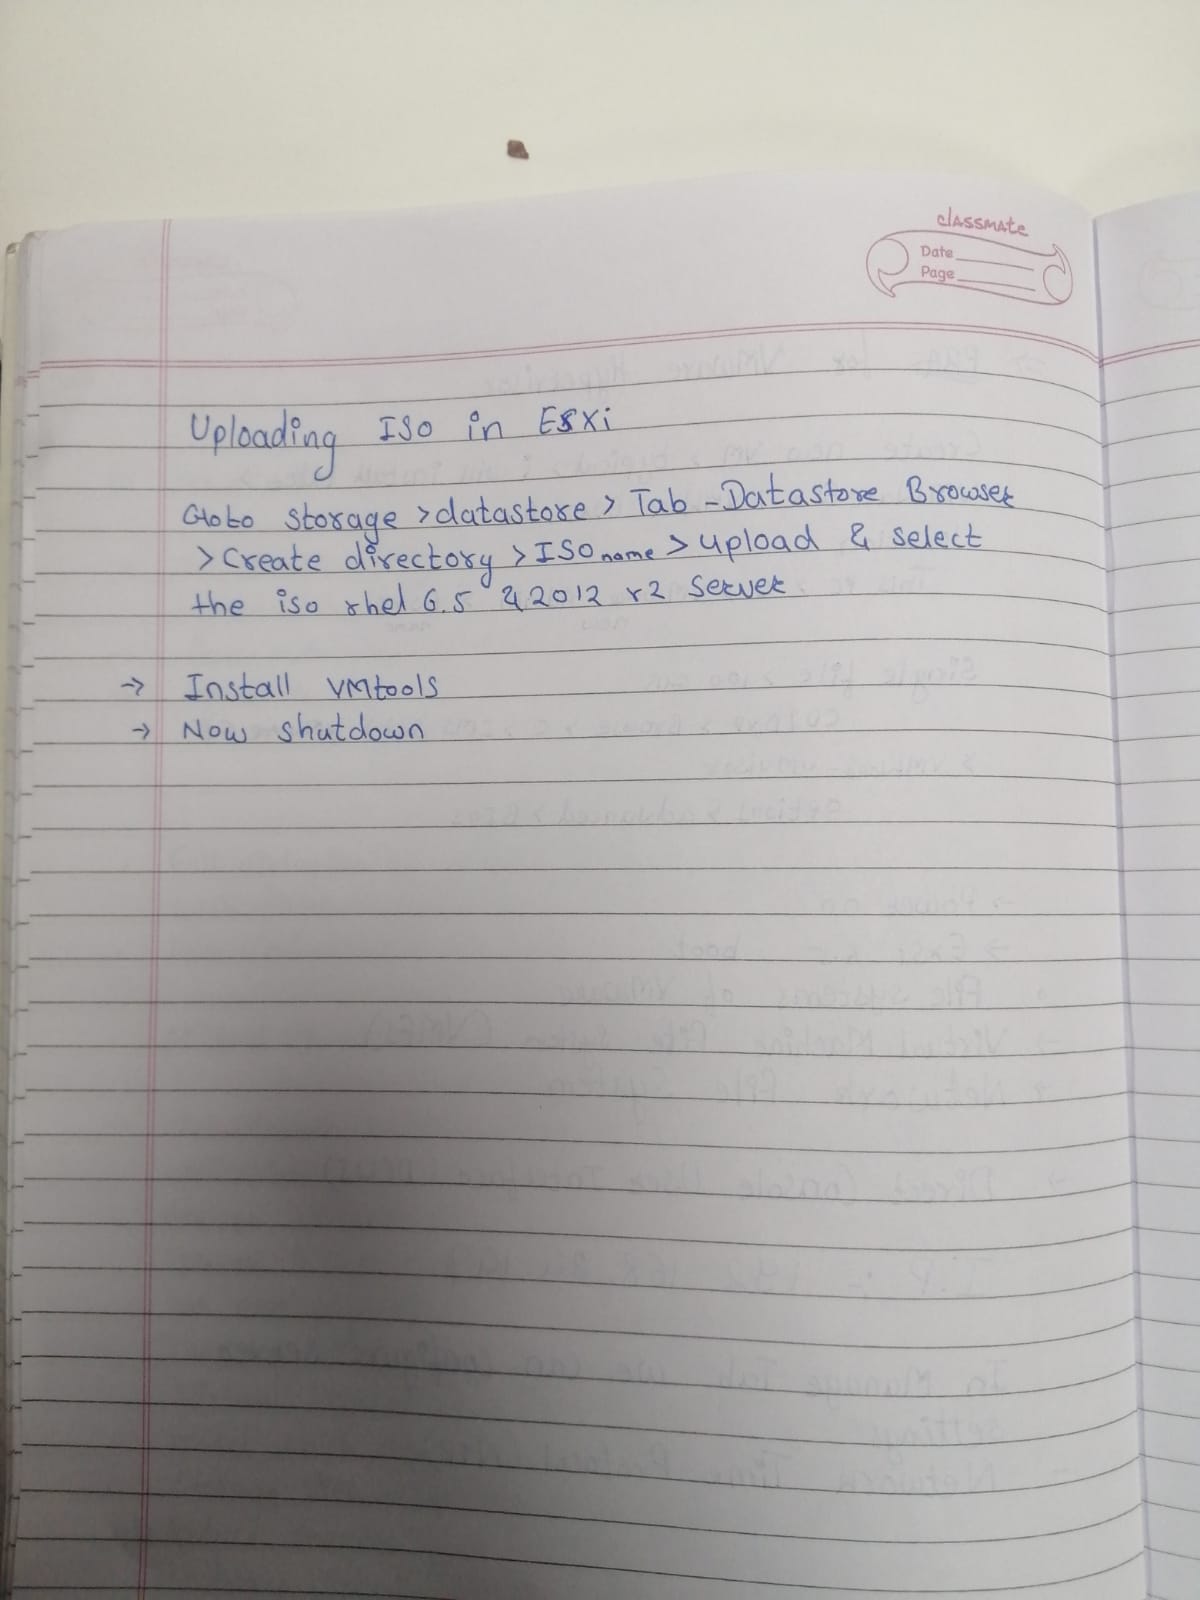 classmate
Date
Page
Uploading ISO in ESXi
Goto storage > datastore > Tab - Datastore Browser
> Create directory > ISO name > upload & select
the iso rhel 6.5 & 2012 r2 server
→ Install VMtools
→ Now shutdown